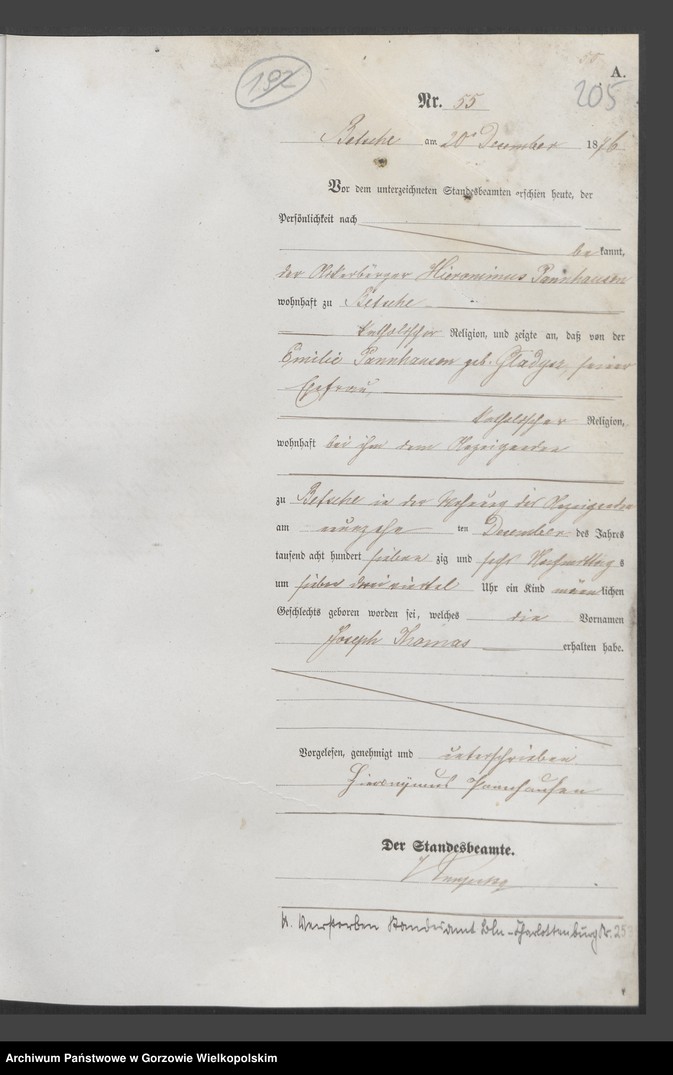 A.
192
205
Nr. 55
Betsche am 20 December 1876
Vor dem unterzeichneten Standesbeamten erschien heute, der
Persönlichkeit nach
be kannt,
der Ackerbürger Hieronimus Pannhausen
wohnhaft zu Betsche
katholischer Religion, und zeigte an, daß von der
Emilie Pannhausen geb. Gladysz, seiner
Ehefrau,
katholischer Religion,
wohnhaft bei ihm dem Anzeigenden
zu Betsche in der Wohnung des Anzeigenden
am neunzehn ten December des Jahres
tausend acht hundert sieben zig und sechs Nachmittag s
um sieben drei viertel Uhr ein Kind männ lichen
Geschlechts geboren worden sei, welches die Vornamen
Joseph Thomas erhalten habe.
Vorgelesen, genehmigt und unterschrieben
Hieronymus Pannhausen
Der Standesbeamte.
Verstorben Standesamt Bln-Charlottenburg Nr. 25
Archiwum Państwowe w Gorzowie Wielkopolskim